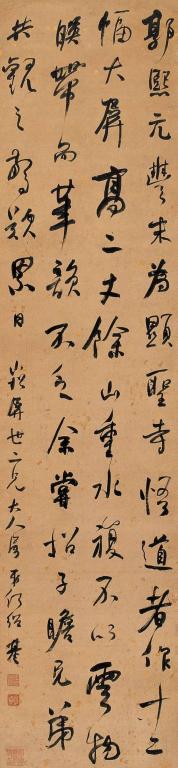 郭熙元豐末為顯聖寺悟道者作十二
幅大屏高二丈餘山重水複不以雲物
映帶而筆韻不乏余嘗招子瞻兄弟
共觀之驚歎累日
崧屏世二兄大人屬